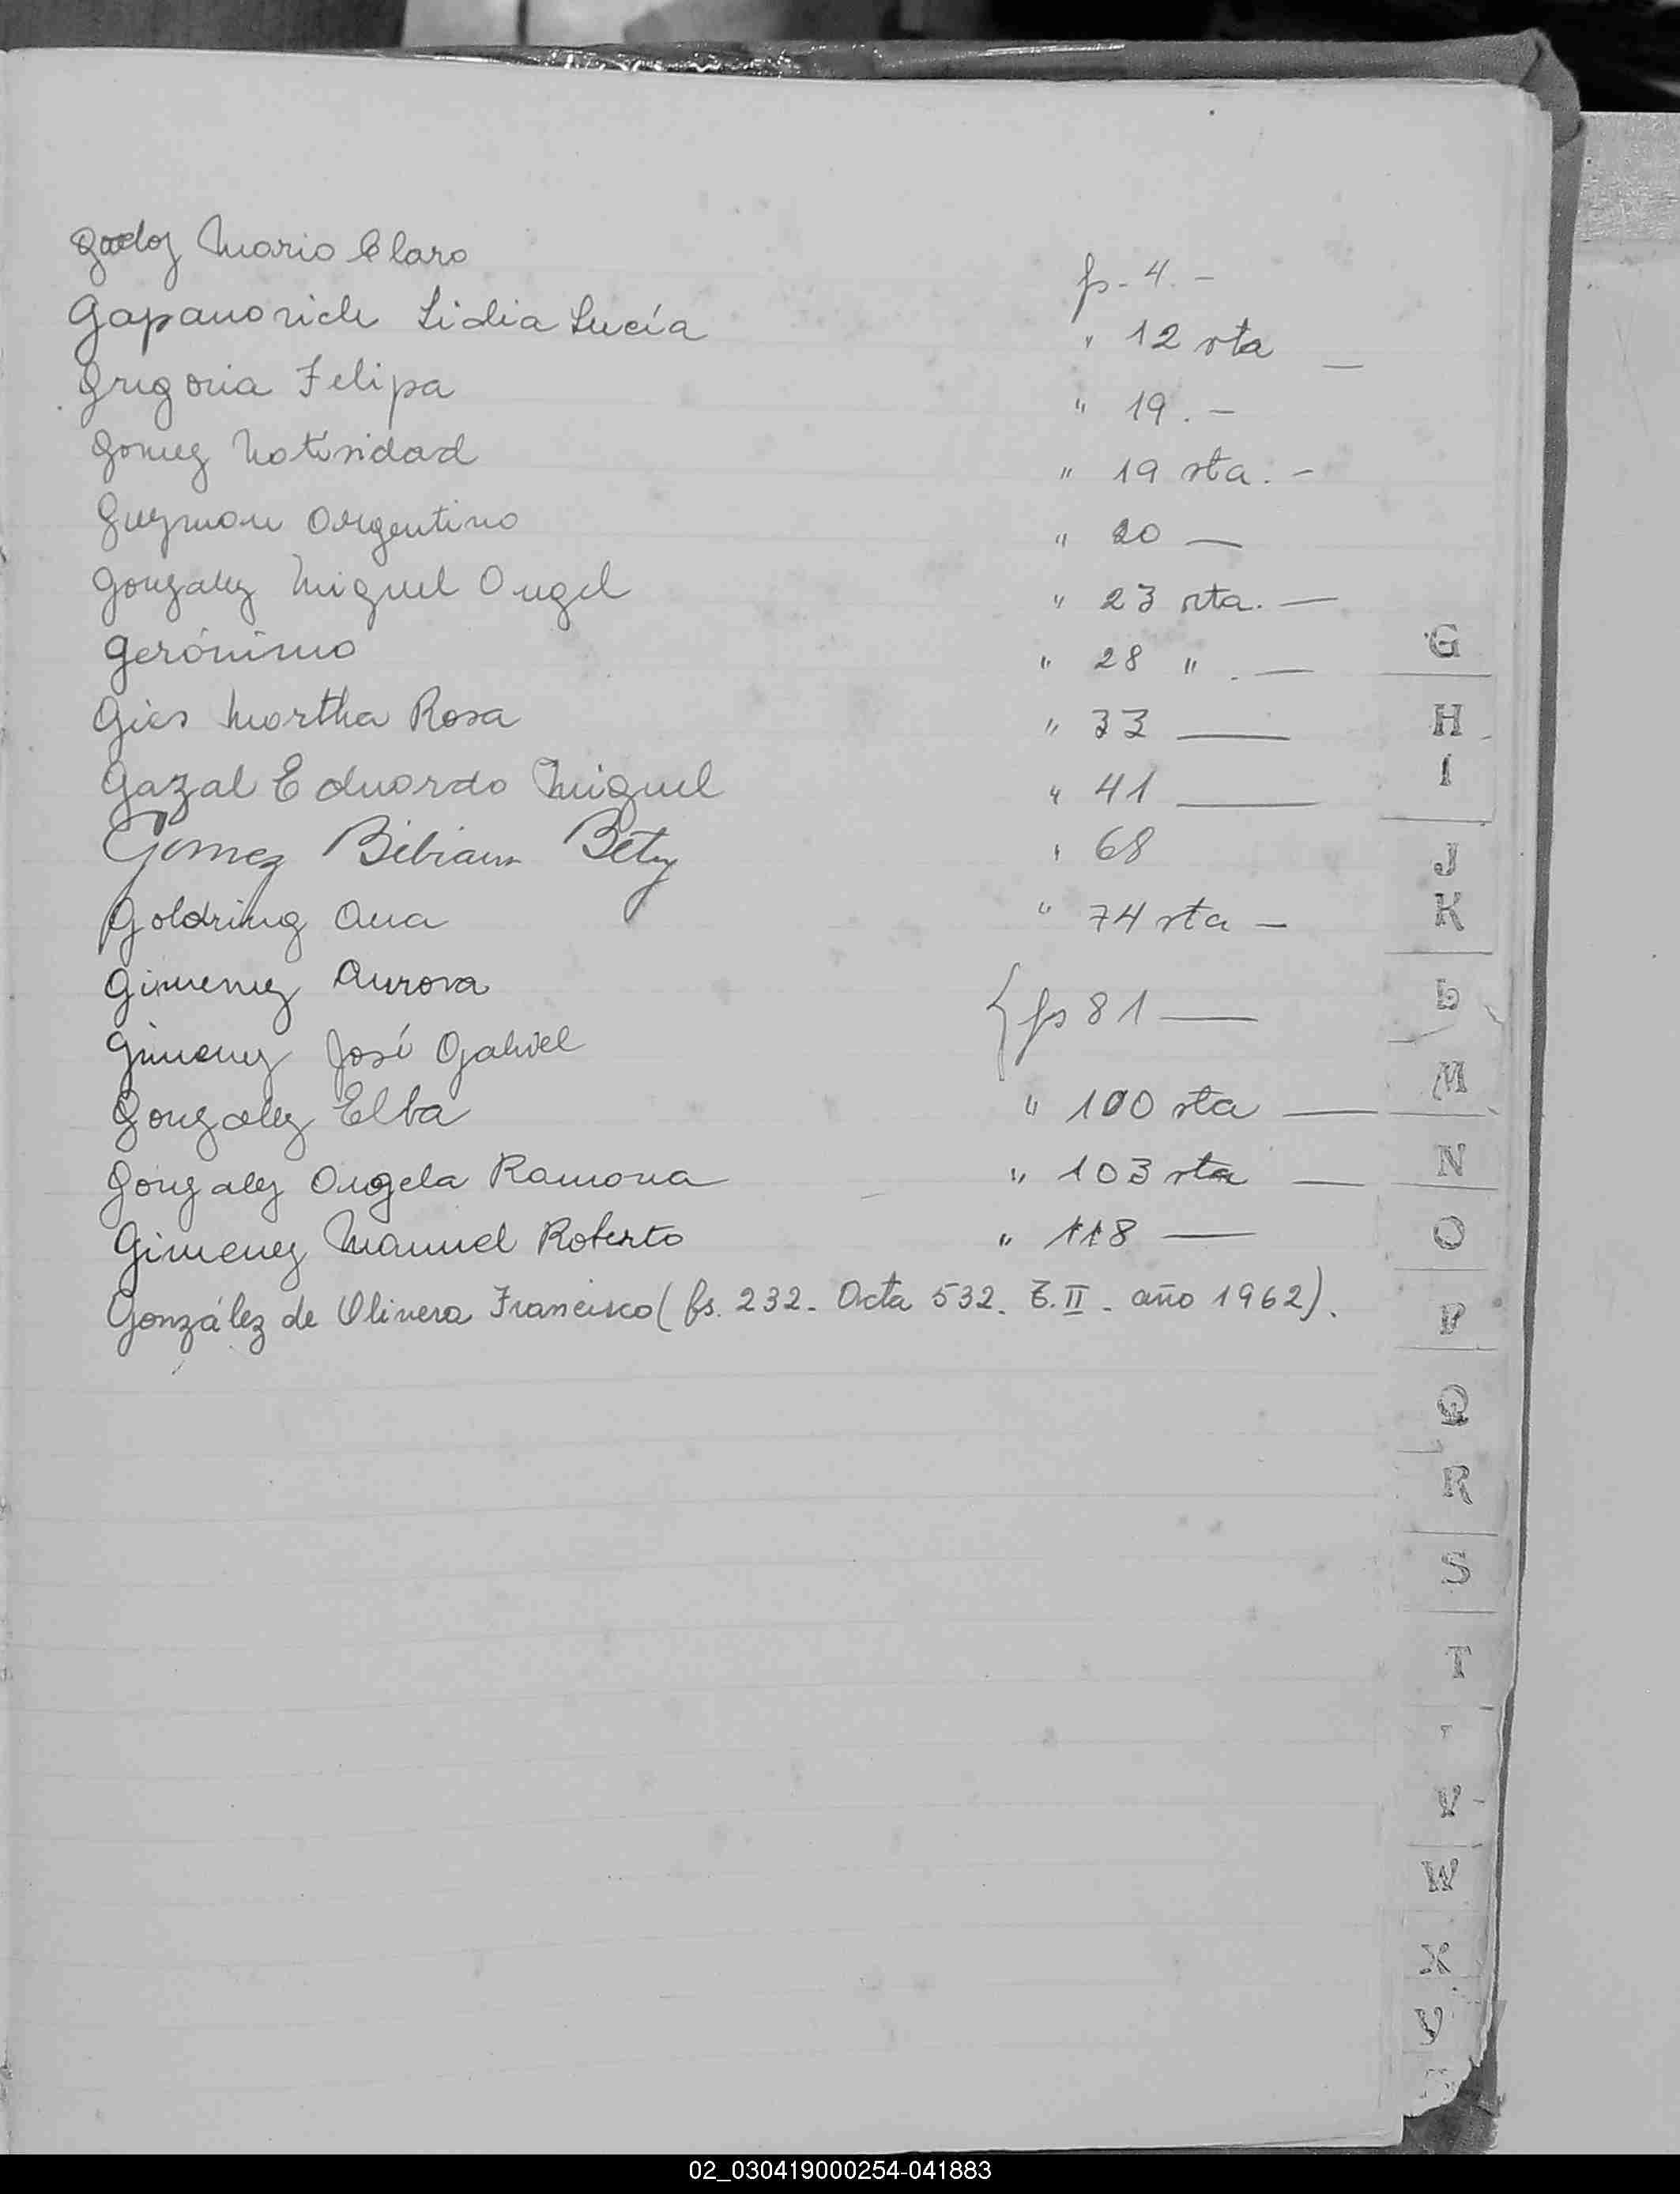 Godoy Maria Clara fs. 4. -
Gapanovich Lidia Lucía " 12 vta —
Grigoria Felipa " 19. -
Gomez Natividad " 19 vta. -
Guzman Argentino " 20 —
Gonzalez Miguel Angel " 23 vta. —
Gerónimo " 28 " . —
Gies Martha Rosa " 33 —
Gazal Eduardo Miguel " 41 —
Gomez Bibiana Bety " 68
Goldring Ana " 74 vta —
Gimenez Aurora
{ fs 81 —
Gimenez José Gabriel
Gonzalez Elba " 100 vta —
Gonzalez Angela Ramona " 103 vta —
Gimenez Manuel Roberto " 118 —
González de Olivera Francisco (fs. 232. Acta 532. T. II - año 1962).
G
H
I
J
K
L
M
N
O
P
Q
R
S
T
V
W
X
Y
02_030419000254-041883